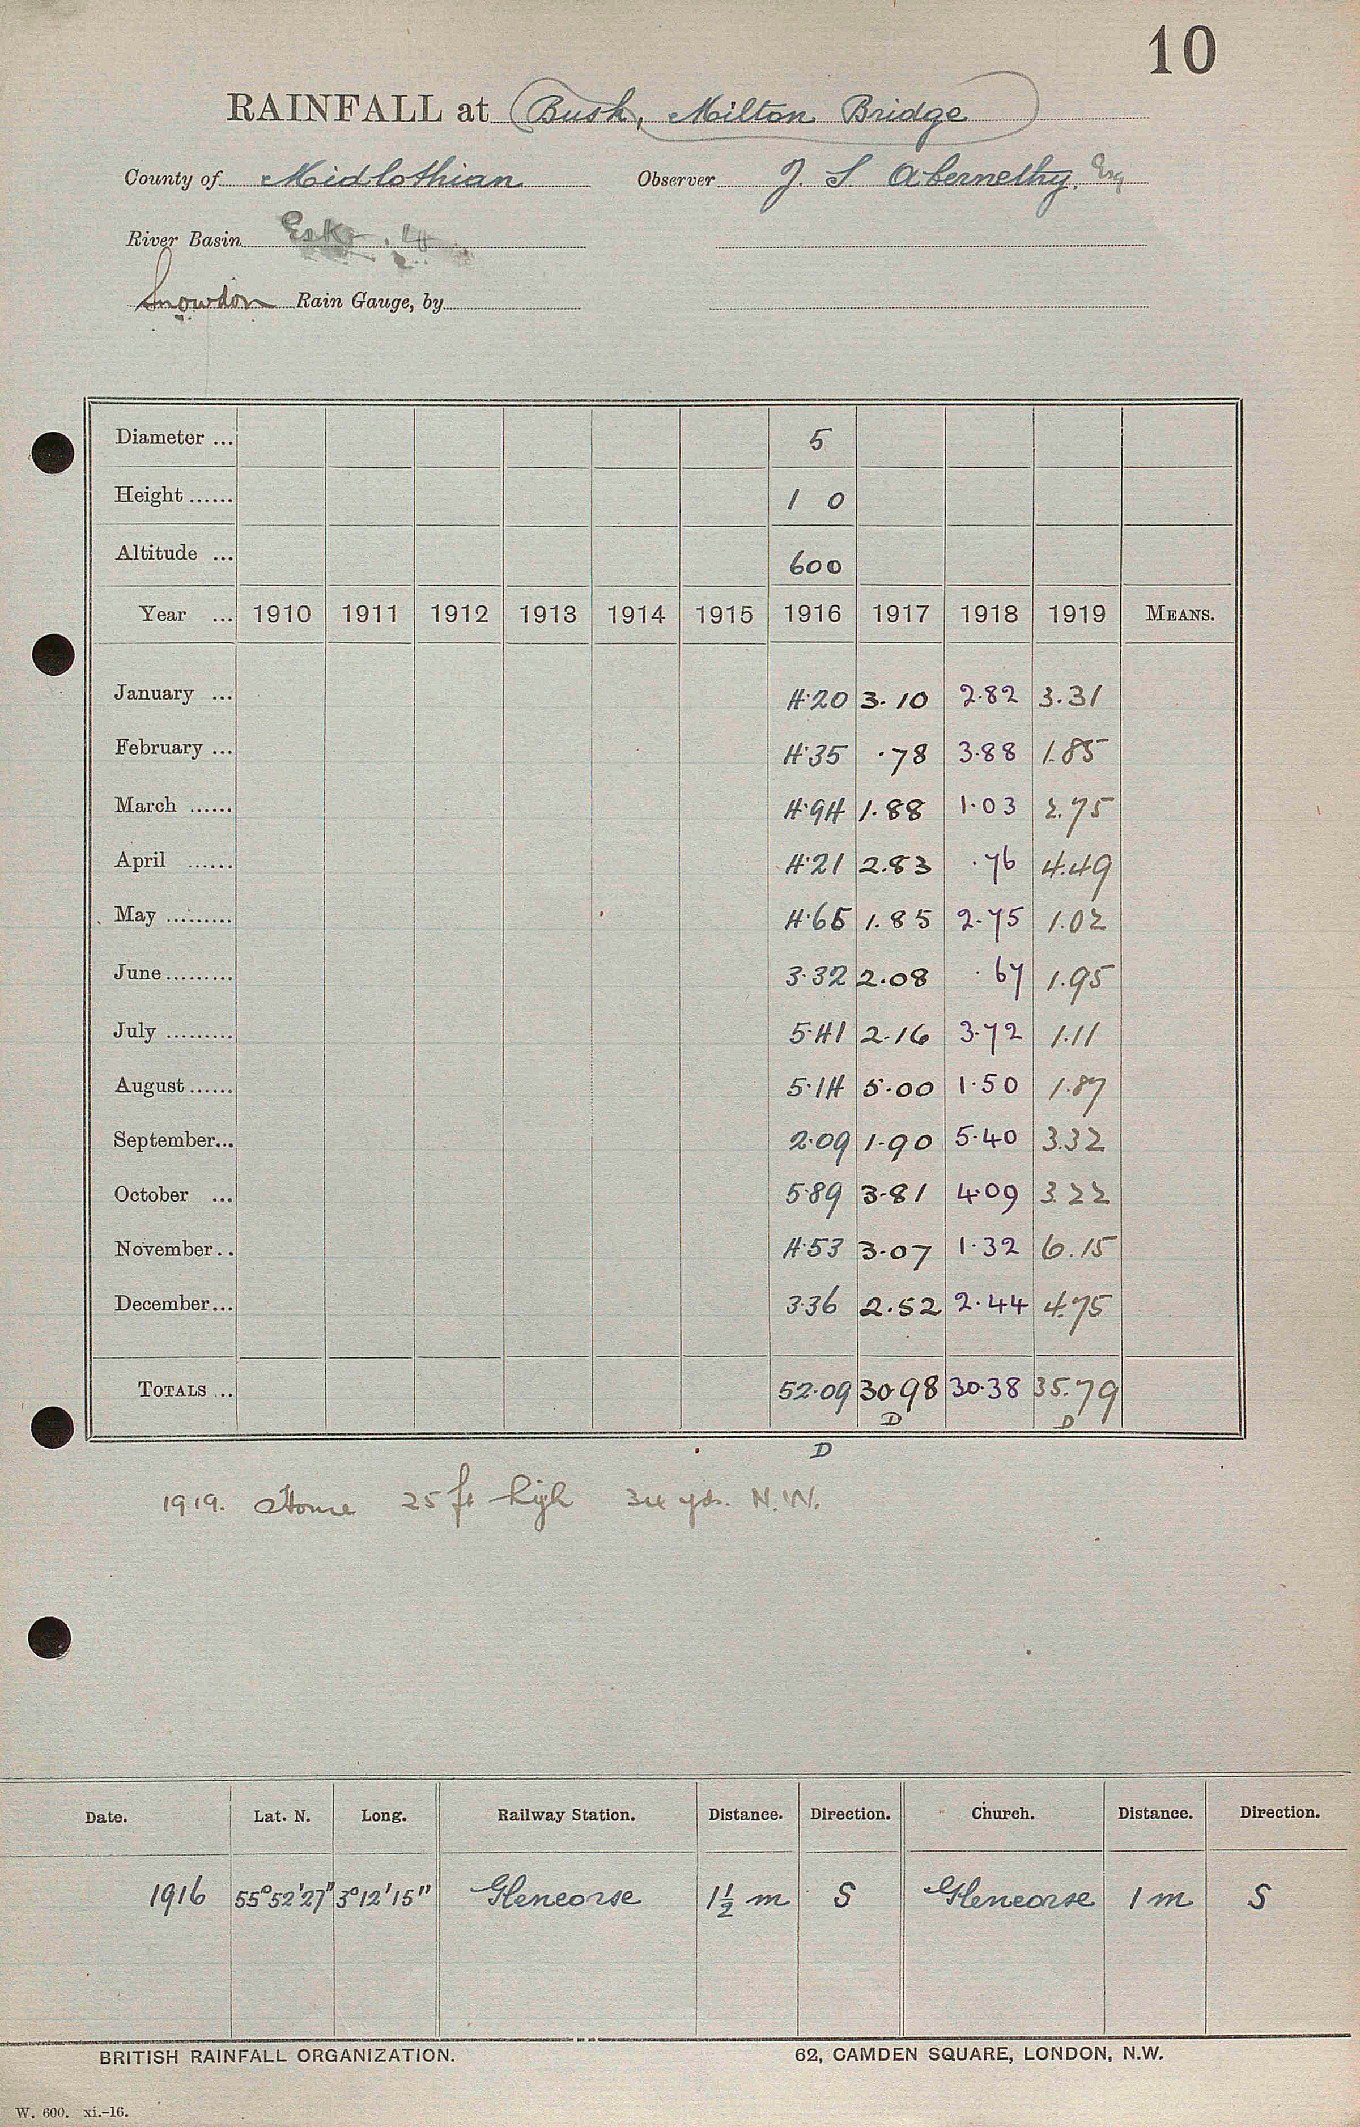 10
RAINFALL at Bush, Milton Bridge
County of Midlothian Observer J. S Abernethy. Esq
River Basin Esk
Snowdon Rain Gauge, by
Diameter ... 5
Height ...... 1 0
Altitude ... 600
Year ... 1910 1911 1912 1913 1914 1915 1916 1917 1918 1919 MEANS.
January ... 4.20 3.10 2.82 3.31
February ... 4.35 .78 3.88 1.85
March ...... 4.94 1.88 1.03 2.75
April ...... 4.21 2.83 .76 4.49
May ......... 4.65 1.85 2.75 1.02
June ......... 3.32 2.08 .67 1.95
July ......... 5.41 2.16 3.72 1.11
August ...... 5.14 5.00 1.50 1.87
September... 2.09 1.90 5.40 3.32
October ... 5.89 3.81 4.09 3.22
November .. 4.53 3.07 1.32 6.15
December... 3.36 2.52 2.44 4.75
TOTALS ... 52.09 30.98 30.38 35.79
D D
D
1919. House 25 ft high 34 yds. N.W.
Date. Lat. N. Long. Railway Station. Distance. Direction. Church. Distance. Direction.
1916 55°52'27" 3°12'15" Glencorse 1½ m S Glencorse 1 m S
BRITISH RAINFALL ORGANIZATION. 62, CAMDEN SQUARE, LONDON, N.W.
W. 600. xi.-16.